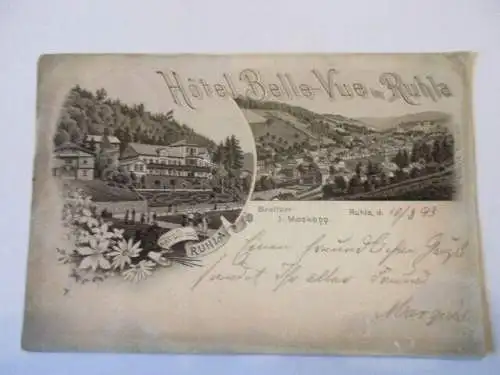 Hôtel Belle-Vue in Ruhla
RUHLA
Besitzer
Ruhla, d. 10/8 93
Einen freundlichen Gruß
sendet Ihr alter Freund